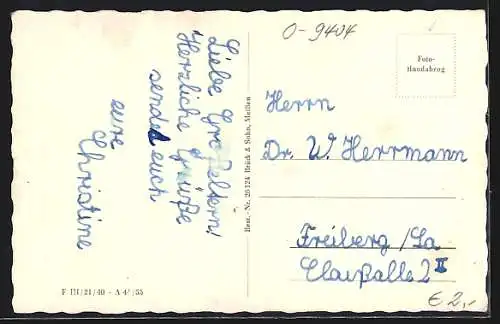 O-9404
Foto-
Handabzug
Liebe Großeltern!
Herzliche Grüße
sendet euch
eure
Christine
Best.-Nr. 26124 Brück & Sohn, Meißen
Herrn
Dr. W. Herrmann
Freiberg /Sa
Claußallee 2 II
€ 2,-
F III/21/40 - A 4¹/55